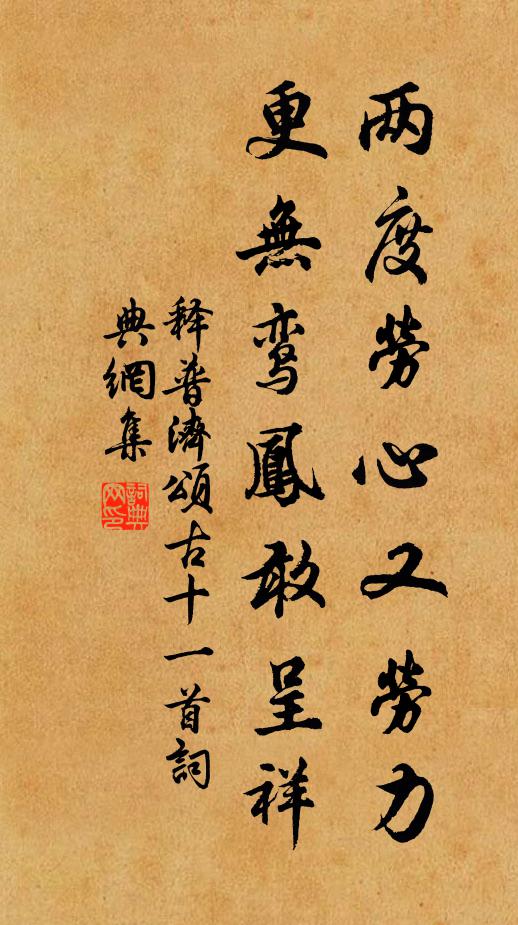 两度勞心又勞力
更無鸾鳳敢呈祥
释普濟頌古十一首詞
典網集
詞典
网印